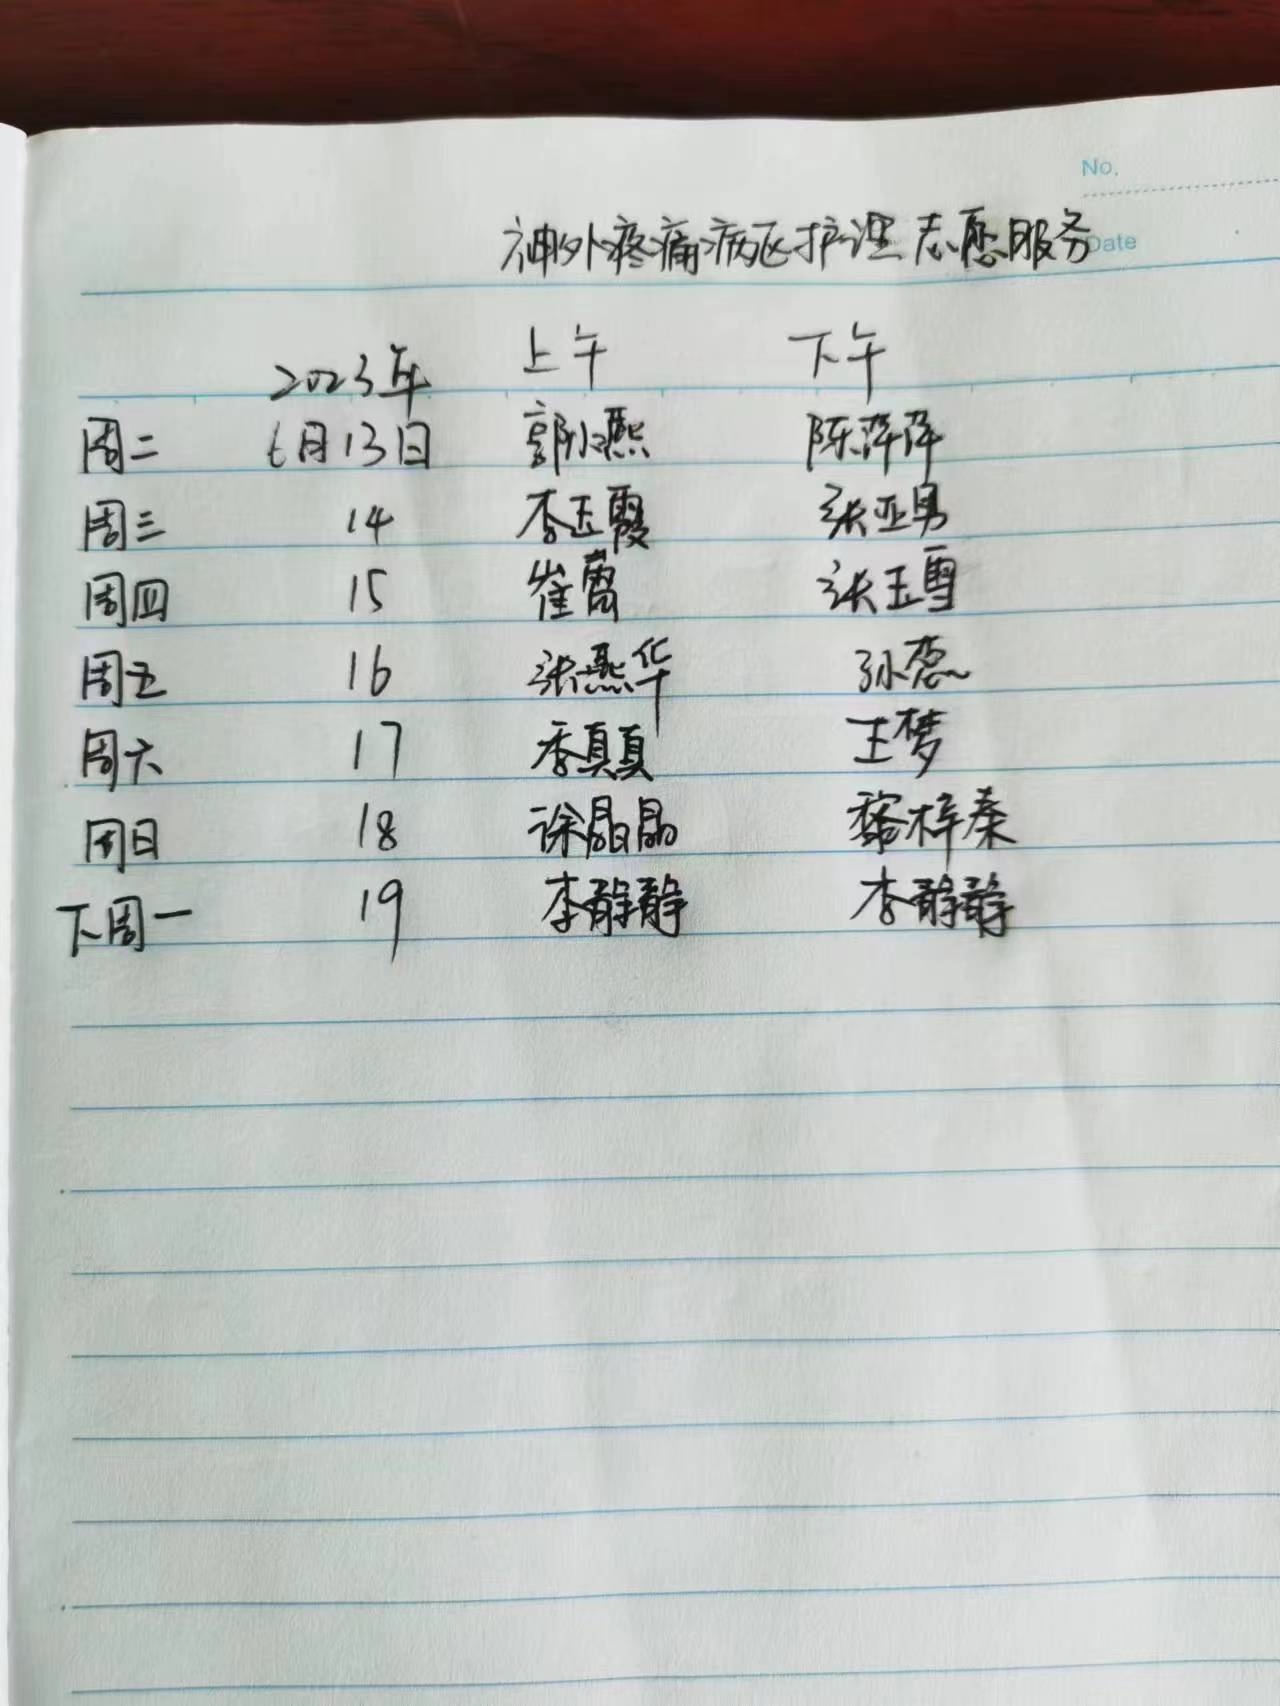 No.
Date
神外疼痛病区护理志愿服务
2023年 上午 下午
周二 6月13日 郭小燕 陈萍萍
周三 14 李玉霞 张亚男
周四 15 崔 张玉雪
周五 16 张燕华 孙蕊
周六 17 季真真 王梦
周日 18 徐晶晶 梓秦
下周一 19 李静静 李静静